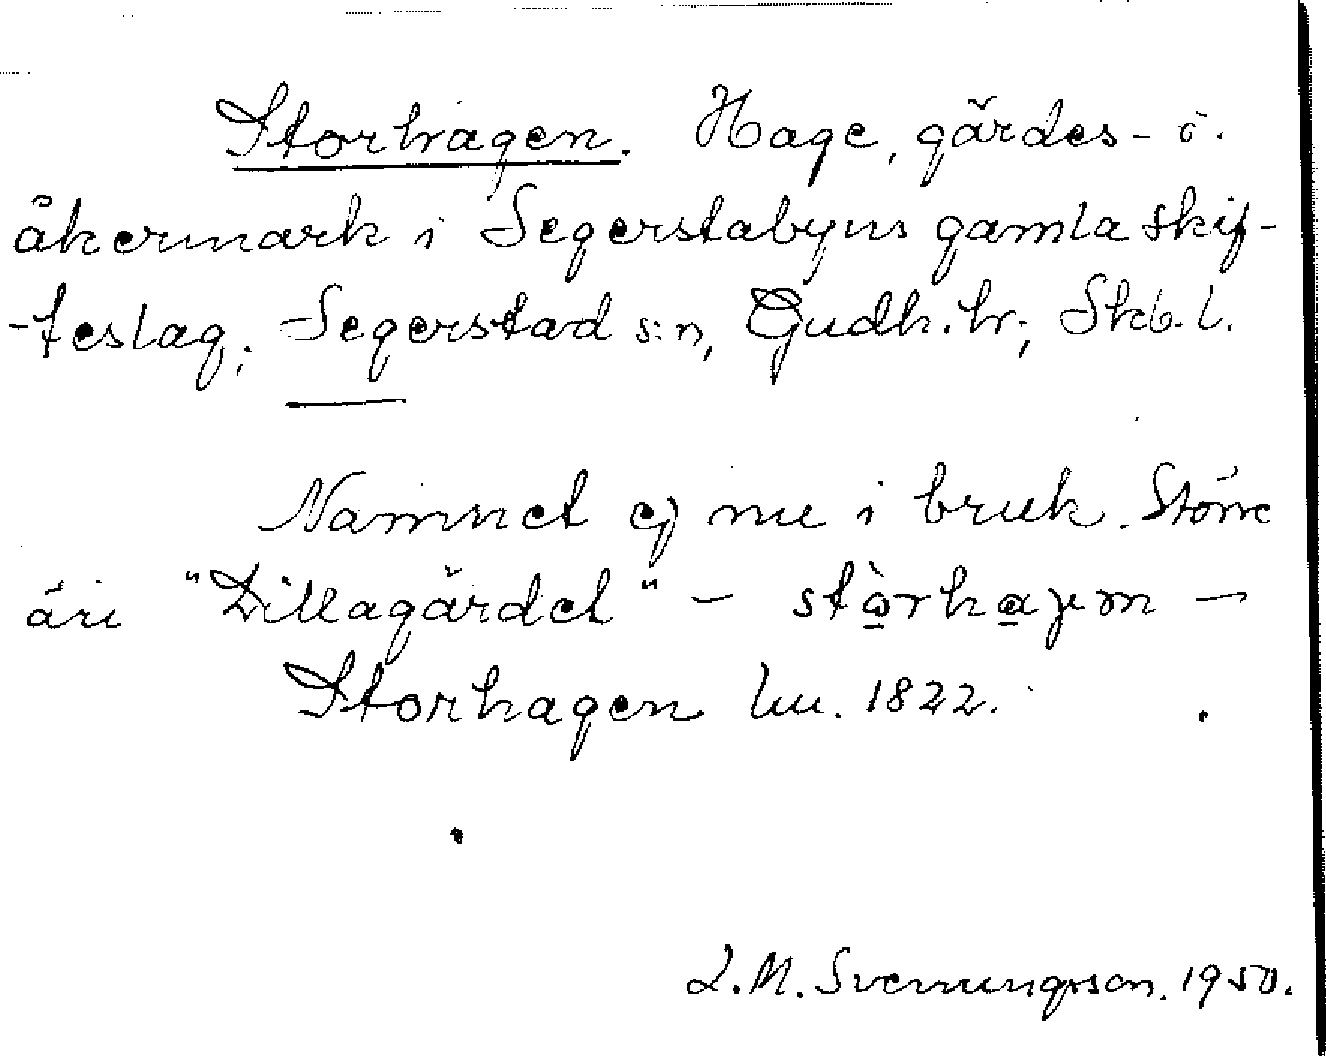 Storhagen. Hage, gärdes- o.
åkermark i Segerstabyns gamla skif-
-teslag, Segerstad s:n, Gudh. hr, Skb. l.
Namnet ej nu i bruk. Större
än "Dillagärdet" – stòrhaɡɛn –
Storhagen lm. 1822.
L. M. Svenungsson. 1950.